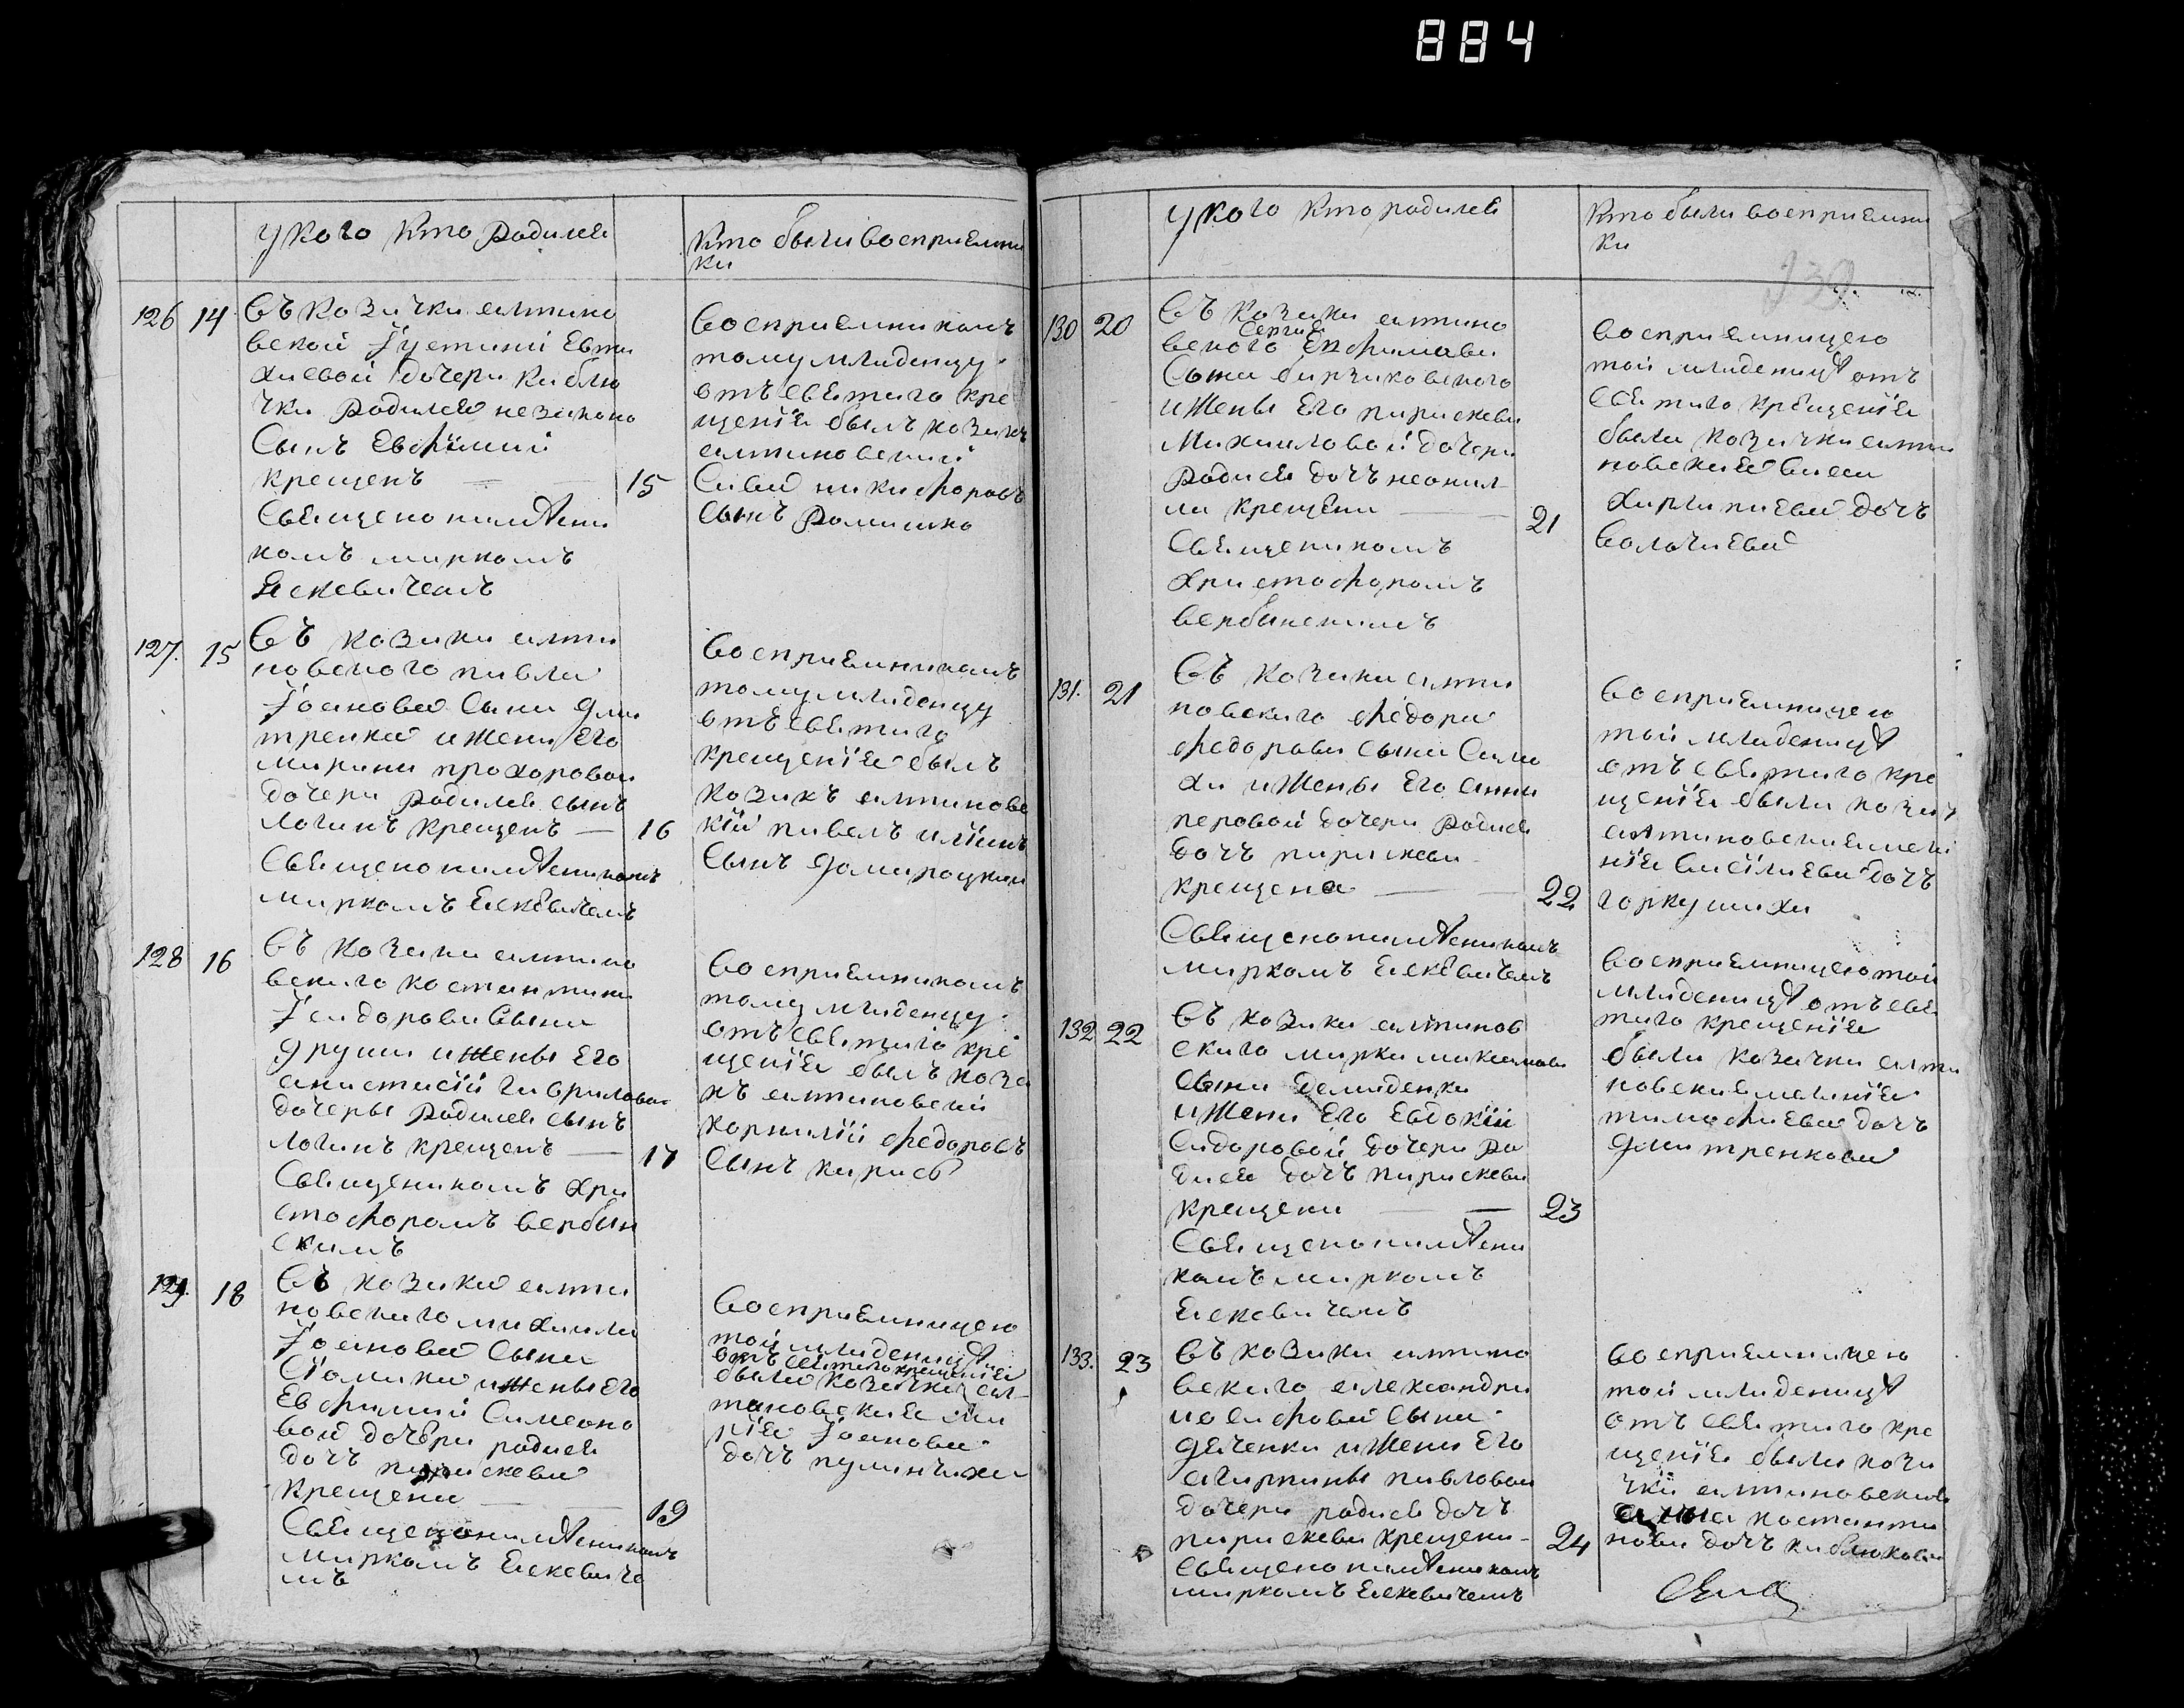 884
у кого кто родилсѧ
кто были восприѣмни
ки
126 14 въ козачки алтино
вской Іустиніи Евти
хиевой дочери Каблу
чки родилсѧ незаконо
Сынъ Евфимий
крещенъ — — 15
Свѣщенонамѣсни
комъ марком
Ескевичемъ
восприѣмникомъ
тому младенцу
отъ свѣтаго кре
щенїѧ былъ козакъ
алтиновский
Сава никифоровъ
сынъ Ромашко
127. 15 въ козака алти
новского павла
Іоанова сына дми
тренка и жени его
марини прохоровои
дочери родилсѧ сынъ
логинъ крещенъ — 16
Свѣщенонамѣсникомъ
маркомъ Еskевичемъ
восприѣмникомъ
тому младенцу
отъ свѣтаго
крещенїѧ былъ
козакъ алтиновс
кїй павелъ
сынъ
128 16 въ козака алтино
вскаго костантина
Ісидорова сына
и жены его
анастасїи гавриловои
дочеры родилсѧ сынъ
логинъ крещенъ — 17
Свѣщеникомъ хри
стофоромъ вербиц
скимъ
восприѣмникомъ
тому младенцу
отъ свѣтаго кре
щенїѧ былъ коза
къ алтиновскій
корнилїй федоровъ
сынъ
129. 18 въ козака алти
новскаго михаила
Іоанова сына
и жены его
Евфимии Симеоно
вой дочери родисѧ
дочъ параскева
крещена — — 19
Свѣщенонамѣсникомъ
маркомъ Еskевиче
мъ
восприѣмницею
той младеницѣ
отъ свѣтаго крещенїѧ
была козачка ал
тиновскаѧ ма
рїѧ Іоанова
дочъ
у кого кто родилсѧ
кто были восприѣмни
ки
139.
130 20 въ козака алтино
Сергиѧ
вского Евфимова
сына
и жены его параскеви
Михаиловой дочери
родисѧ дочъ неонил
ла крещена — — 21
Свѣщеникомъ
христофоромъ
вербицскимъ
восприѣмницею
той младеницѣ отъ
свѣтаго крещенїѧ
была козачка алти
новскаѧ васса
харлапиева дочъ
131. 21 въ козака алти
новскаго федора
федорова сына
и жены его анни
петровой дочери родисѧ
дочъ параскева
крещена — — 22
Свѣщенонамѣсникомъ
маркомъ Еskевичемъ
восприѣмницею
той младеницѣ
отъ свѣтаго кре
щенїѧ была козач
алтиновскаѧ мела
нїѧ васїлиева дочъ
горкушиха
132 22 въ козака алтинов
скаго марка максимова
сына демиденка
и жени его Евдокїи
Сидоровой дочери ро
дисѧ дочъ параскева
крещена — — 23
Свѣщенонамѣсни
комъ маркомъ
Еskевичемъ
восприѣмницею той
младеницѣ отъ свѣ
таго крещенїѧ
была козачка алти
новскаѧ меланїѧ
тимофиева дочъ
дмитренкова
133. 23 въ козака алтино
вскаго александра
иосифова сына
дѧченка и жени его
агирпины павловои
дочери родисѧ дочъ
параскева крещена — 24
Свѣщенонамѣсникомъ
маркомъ Еskевичемъ
восприѣмницею
той младеницѣ
отъ свѣтаго кре
щенїѧ была коза
чка алтиновскаѧ
анна костанти
нова дочъ каблюкова